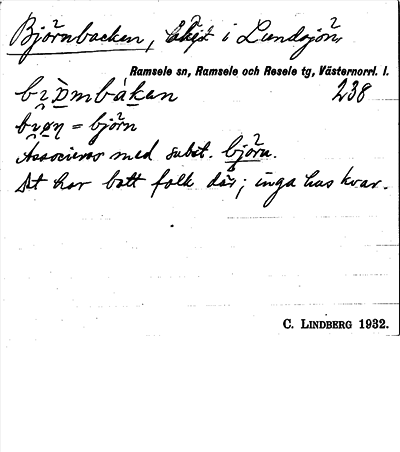 Björnbacken, lägd i Lundsjön,
Ramsele sn, Ramsele och Resele tg, Västernorrl. l.
238
= björn
Associeras med subst. björn.
Det har bott folk där; inga hus kvar.
C. LINDBERG 1932.